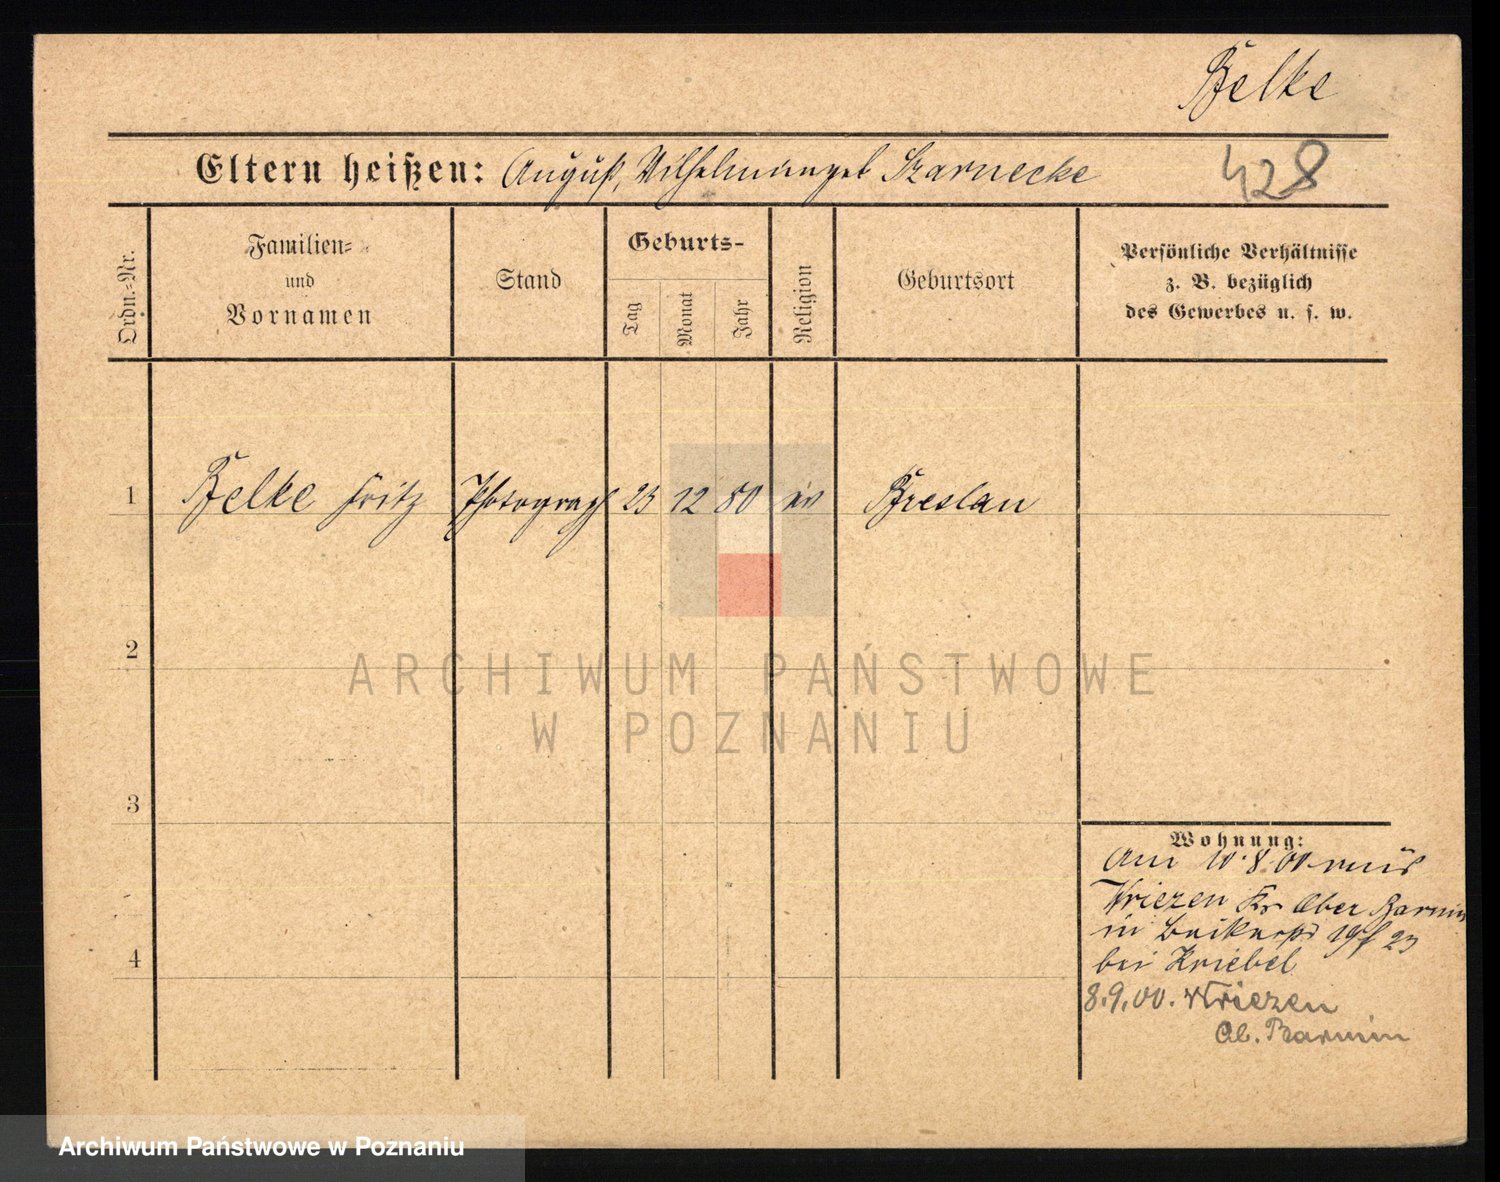 Belke
Eltern heißen: August, Wilhelmine geb Szarnecke
428
Ordn.-Nr.
Familien-
und
Vornamen
Stand
Geburts-
Tag
Monat
Jahr
Religion
Geburtsort
Persönliche Verhältnisse
z. B. bezüglich
des Gewerbes u. s. w.
1 Belke Fritz Photograph 23 12 80 ev Breslau
2
3
4
ARCHIWUM PAŃSTWOWE
W POZNANIU
Wohnung:
Am 10.8.00 aus
Wriezen Kr Ober Barnim
in 23
bei Kriebel
8.9.00. Wriezen
Ob. Barnim
Archiwum Państwowe w Poznaniu